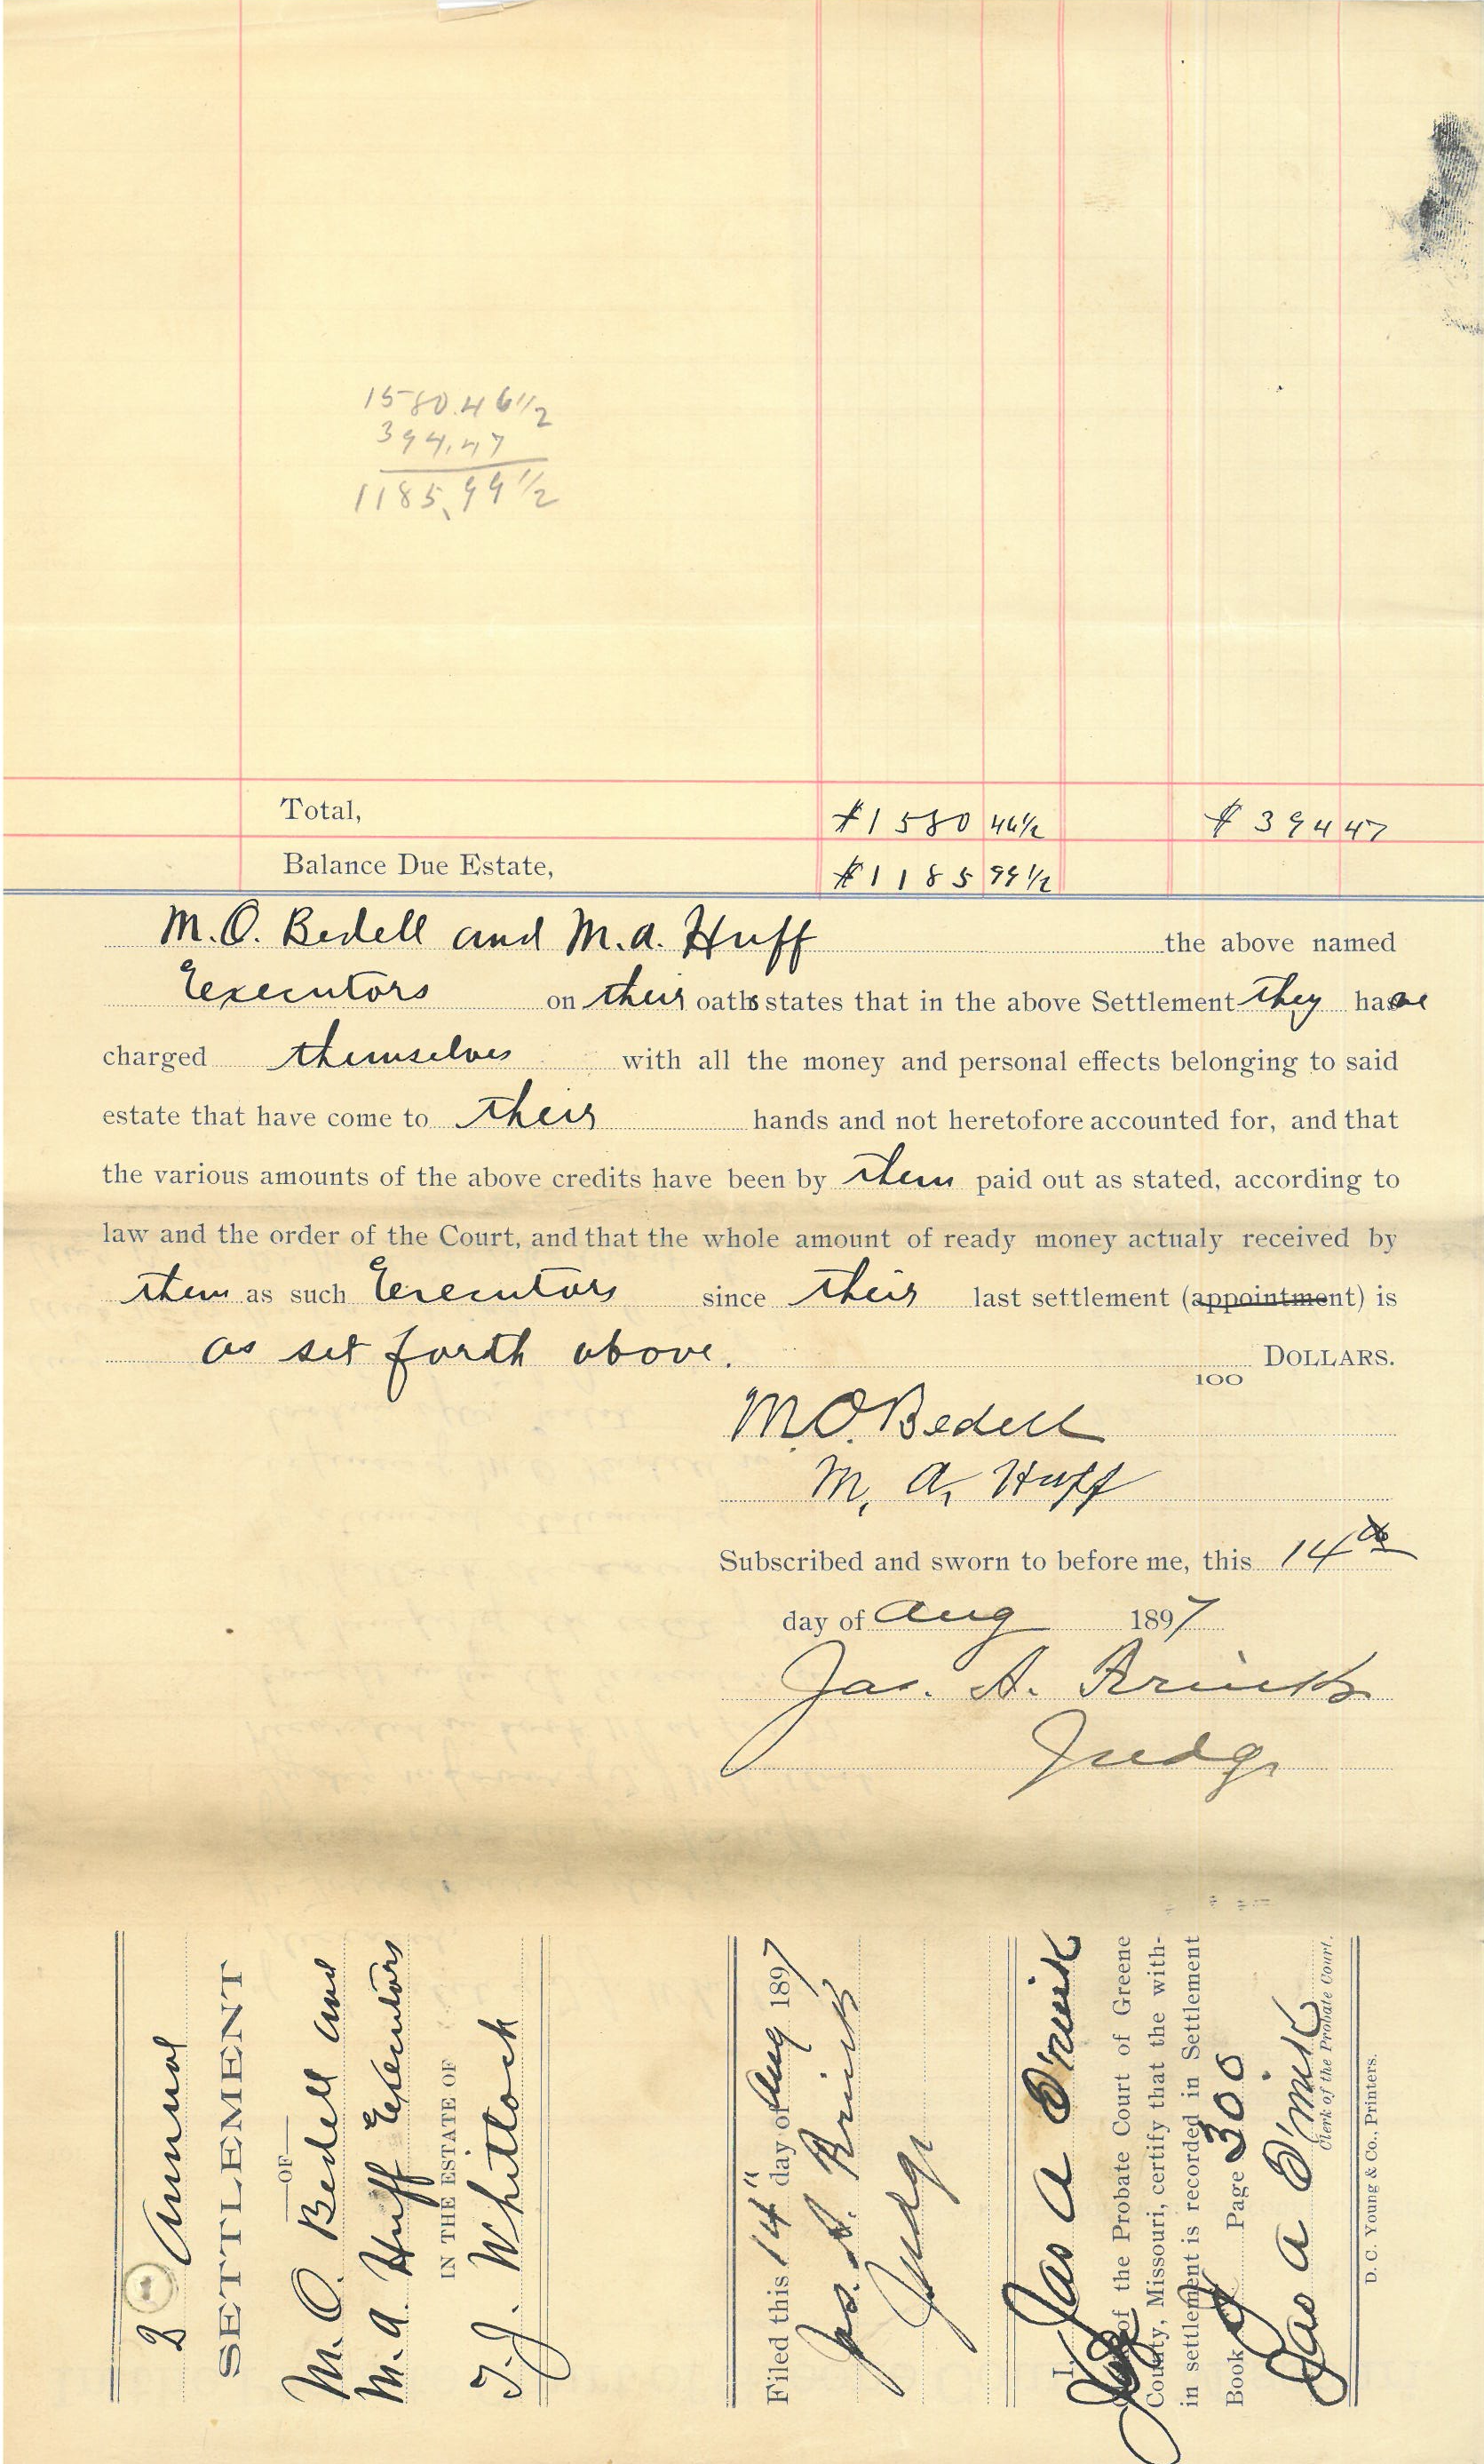 1580.46 1/2
394.47
1185.99 1/2
Total, $1580 46 1/2 $394 47
Balance Due Estate, $1185 99 1/2
M.O. Bedell and M.A. Huff the above named
Executors on their oaths states that in the above Settlement they have
charged themselves with all the money and personal effects belonging to said
estate that have come to their hands and not heretofore accounted for, and that
the various amounts of the above credits have been by them paid out as stated, according to
law and the order of the Court, and that the whole amount of ready money actualy received by
them as such Executors since their last settlement (appointment) is
as set forth above. 100 DOLLARS.
M.O. Bedell
M. A. Huff
Subscribed and sworn to before me, this 14th
day of Aug 1897
Jas. A.
Judge
2 Annual
SETTLEMENT
OF
M. O. Bedell and
M. A. Huff Executors
IN THE ESTATE OF
T. J. Whitlock
Filed this 14" day of Aug 1897
Jas. A.
Judge
I, Jas A
of the Probate Court of Greene
County, Missouri, certify that the with-
in settlement is recorded in Settlement
Book Page 300
Jas A
Clerk of the Probate Court.
D. C. Young & Co., Printers.